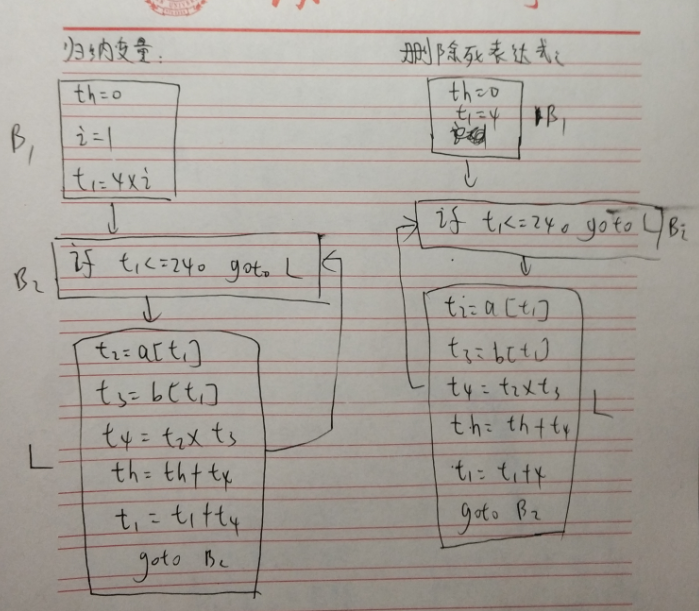 归纳变量:
th=0
B1
i=1
t1=4×i
B2
if t1<=240 goto L
t2=a[t1]
t3=b[t1]
t4=t2×t3
L
th=th+t4
t1=t1+t4
goto B2
删除死表达式:
th=0
t1=4
B1
if t1<=240 goto L
B2
t2=a[t1]
t3=b[t1]
t4=t2×t3
L
th=th+t4
t1=t1+4
goto B2